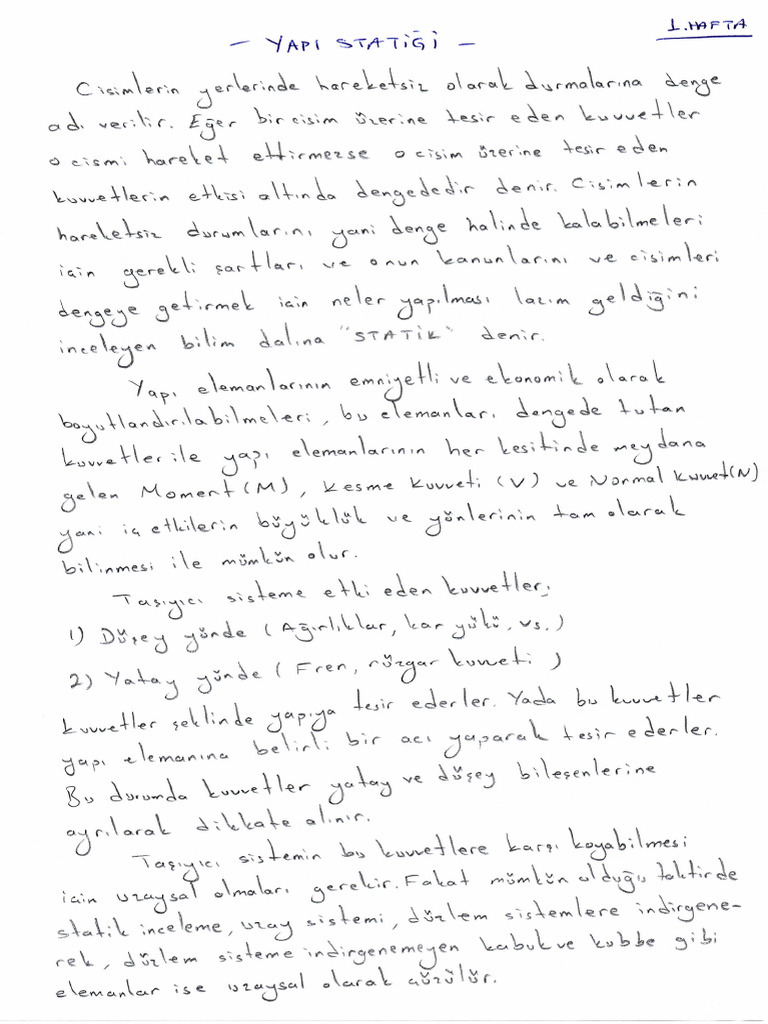 1. HAFTA
- YAPI STATİĞİ -
Cisimlerin yerlerinde hareketsiz olarak durmalarına denge
adı verilir. Eğer bir cisim üzerine tesir eden kuvvetler
o cismi hareket ettirmezse o cisim üzerine tesir eden
kuvvetlerin etkisi altında dengededir denir. Cisimlerin
hareketsiz durumlarını yani denge halinde kalabilmeleri
için gerekli şartları ve onun kanunlarını ve cisimleri
dengeye getirmek için neler yapılması lazım geldiğini
inceleyen bilim dalına "STATİK" denir.
Yapı elemanlarının emniyetli ve ekonomik olarak
boyutlandırılabilmeleri, bu elemanları dengede tutan
kuvvetler ile yapı elemanlarının her kesitinde meydana
gelen Moment (M), Kesme Kuvveti (V) ve Normal Kuvvet (N)
yani iç etkilerin büyüklük ve yönlerinin tam olarak
bilinmesi ile mümkün olur.
Taşıyıcı sisteme etki eden kuvvetler;
1) Düşey yönde (Ağırlıklar, kar yükü, vs.)
2) Yatay yönde (Fren, rüzgar kuvveti)
kuvvetler şeklinde yapıya tesir ederler. Yada bu kuvvetler
yapı elemanına belirli bir açı yaparak tesir ederler.
Bu durumda kuvvetler yatay ve düşey bileşenlerine
ayrılarak dikkate alınır.
Taşıyıcı sistemin bu kuvvetlere karşı koyabilmesi
için uzaysal olmaları gerekir. Fakat mümkün olduğu taktirde
statik inceleme, uzay sistemi, düzlem sistemlere indirgene-
rek, düzlem sisteme indirgenemeyen kabuk ve kubbe gibi
elemanlar ise uzaysal olarak çözülür.